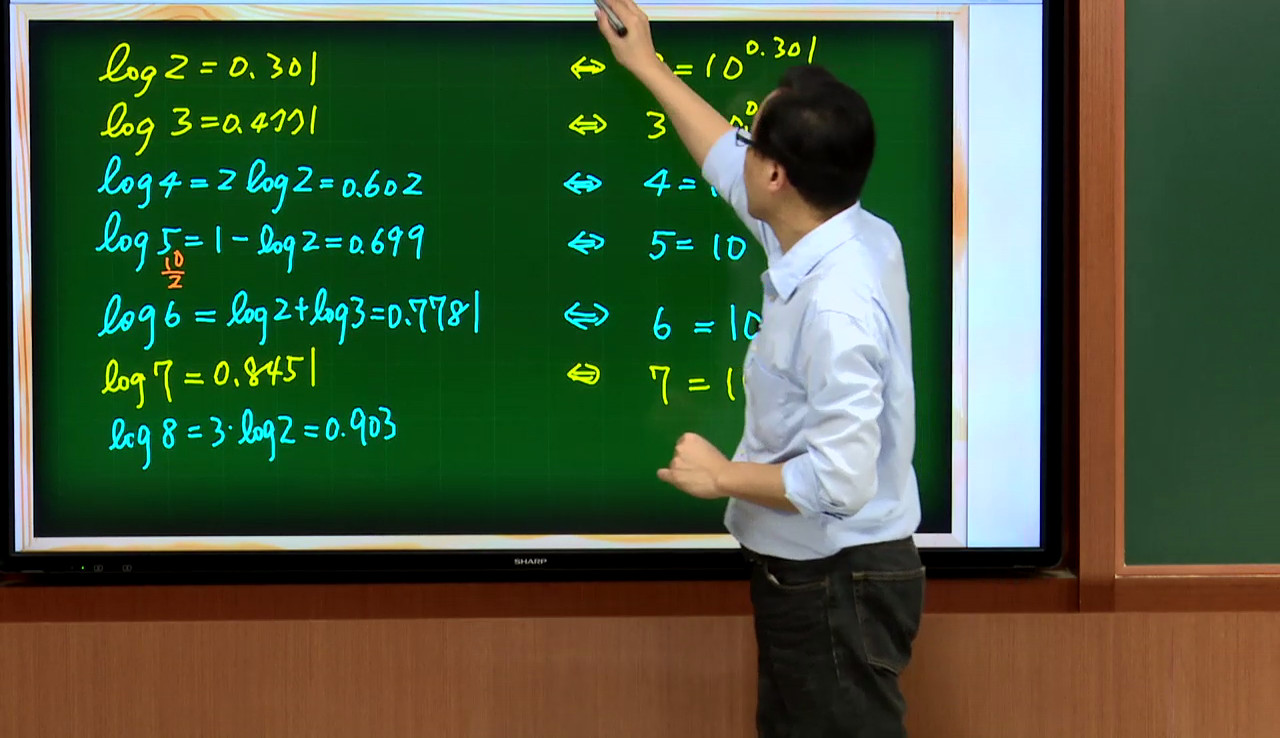 log 2 = 0.301 ⇔ = 10^0.301
log 3 = 0.4771 ⇔ 3
log 4 = 2 log 2 = 0.602 ⇔ 4 =
log 5 = 1 - log 2 = 0.699 ⇔ 5 = 10
10/2
log 6 = log 2 + log 3 = 0.7781 ⇔ 6 = 10
log 7 = 0.8451 ⇔ 7 = 1
log 8 = 3 · log 2 = 0.903
SHARP